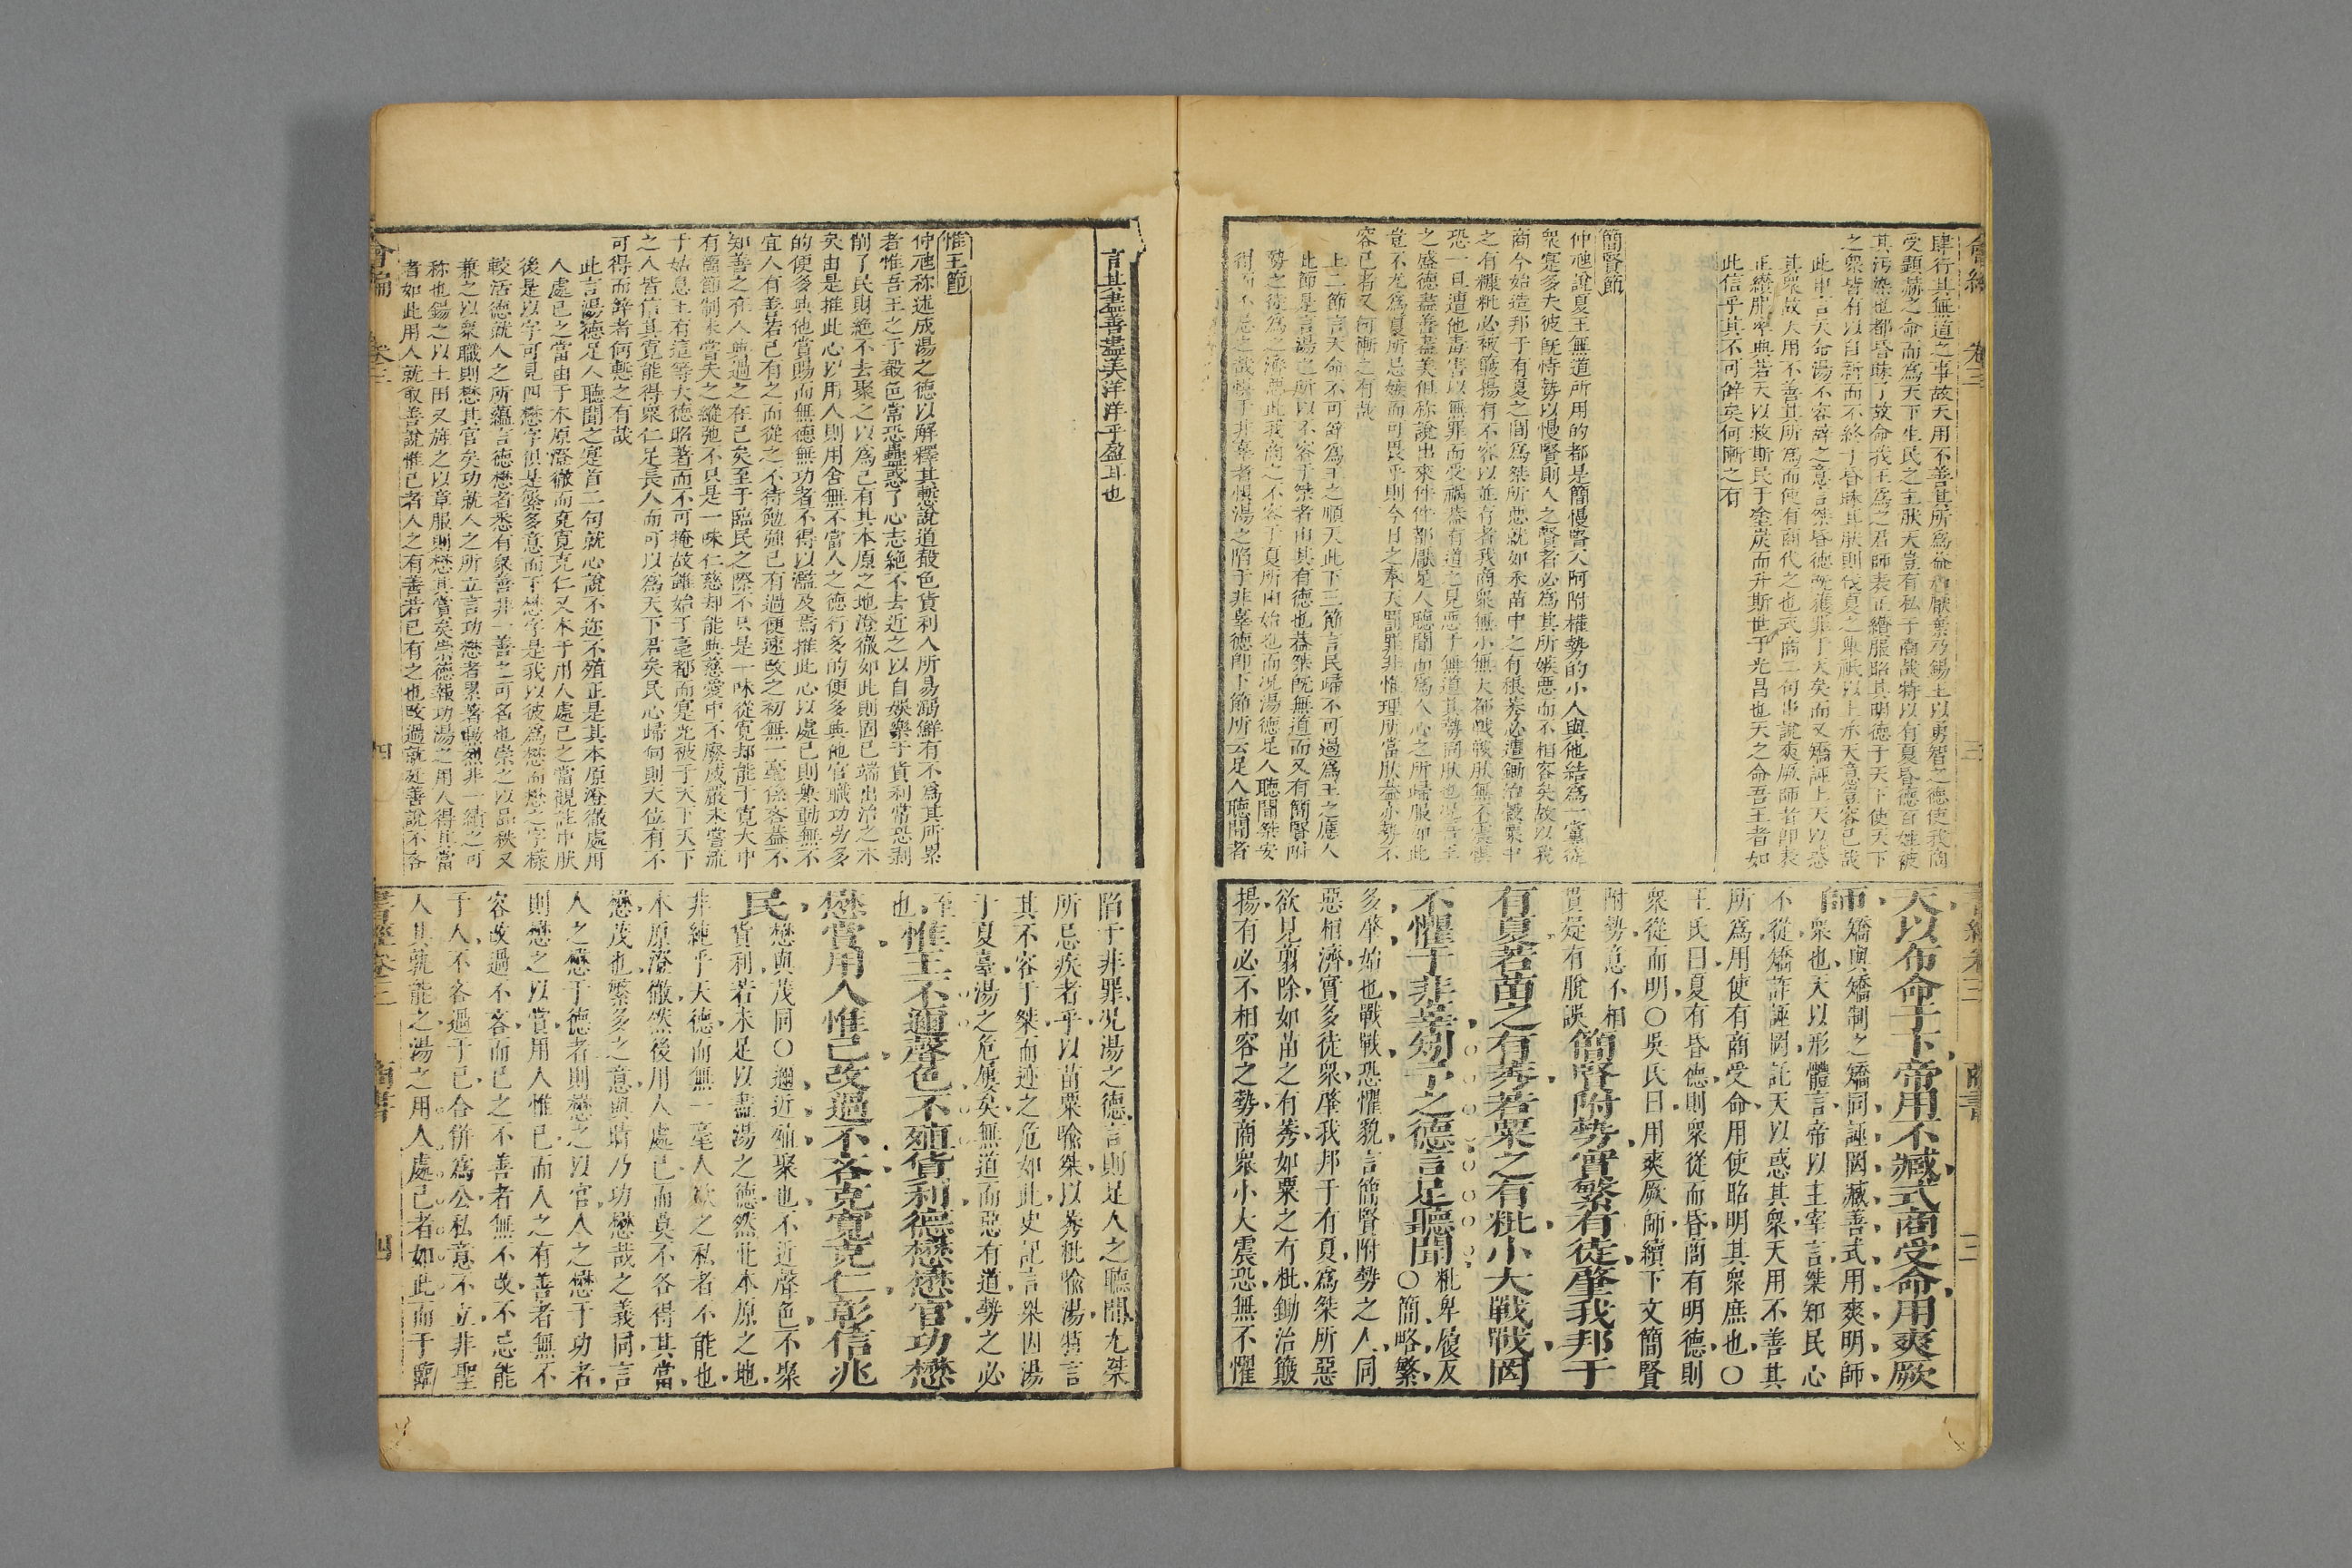 肆行其無道之事故天用不善其所爲
受顯赫之命而爲天下生民之主肰天豈有私于商哉特以有夏昏德百姓被
其污染也都昏昧了故命我王爲之君師表正纘服昭其明德于天下使天下
之衆皆有以自新而不終于昏昧
此申言天命湯不容辭之意言桀昏德
其衆故天用不善其所爲而使有商代之也式商二句
正纘服率典若天以救斯民于塗炭而升斯世于光昌也天之命吾王者如
此信乎其不可辭矣何慚之有
簡賢節
仲虺說夏王無道所用的都是簡慢賢人阿附權勢的小人與他結爲一黨徒
衆寔多夫彼旣恃勢以慢賢則人之賢者必爲其所嫉惡而不相容矣故以我
商今始造邦于有夏之間爲桀所惡就如禾苗中之有稂莠必遭鋤治榖粟中
之有糠粃必被簸揚有不容以並存者我商衆無小無大都戰戰肰無不震悚
恐一旦遭他毒害以無罪而受禍
之盛德盡善盡美但称說出來件件都厭足人聽聞而爲人心之所歸服如此
豈不尤爲夏所忌嫉而可畏乎則今日之奉天罰罪非惟理所當肰
容已者又何慚之有哉
上二節言天命不可辭爲王之順天此下三節言民歸不可過爲王之應人
此節是言湯之所以不容于桀者由其有德也葢桀旣無道而又有簡賢附
勢之徒爲之濟惡此我商之不容于夏所由始也而况湯德足人聽聞桀安
得而不忌之哉懼于非辜者懼湯之陷于非辜德卽下節所云足人聽聞者
天以布命于下帝用不臧式商受命用爽厥
師矯與矯制之矯同誣罔臧善式用爽明師
衆也天以形體言帝以主宰言桀知民心
不從矯詐誣罔託天以惑其衆天用不善其
所爲用使有商受命用使昭明其衆庶也○
王氏曰夏有昏德則衆從而昏商有明德則
衆從而明○吳氏曰用爽厥師續下文簡賢
附勢意不相
貫疑有脫誤簡賢附勢寔繁有徒肇我邦于
有夏若苗之有莠若粟之有粃小大戰戰罔
不懼于非辜矧予之德言足聽聞粃卑履反○簡略繁
多肇始也戰戰恐懼貌言簡賢附勢之人同
惡相濟實多徒衆肇我邦于有夏爲桀所惡
欲見翦除如苗之有莠如粟之有粃鋤治簸
揚有必不相容之勢商衆小大震恐無不懼
言其盡善盡美洋洋乎盈耳也
惟王節
仲虺称述成湯之德以解釋其慙說道聲色貨利人所易溺鮮有不爲其所累
者惟吾王之于聲色常恐蠱惑了心志絶不去近之以自娛樂于貨利常恐剥
削了民財絶不去聚之以爲己有其本原之地澄徹如此則固已端出治之本
矣由是推此心以用人則用舍無不當人之德行多的便多與他官職功勞多
的便多與他賞賜而無德無功者不得以濫及焉推此心以處己則舉動無不
宜人有善若己有之而從之不待勉強己有過便速改之初無一毫係吝葢不
知善之在人與過之在己矣至于臨民之際不只是一味從寛却能于寛大中
有箇節制未嘗失之縱弛不只是一味仁慈却能與慈愛中不廢威嚴未嘗流
于姑息王有這等大德昭著而不可掩故雖始于亳都而寔光被于天下天下
之人皆信其寛能得衆仁足長人而可以爲天下君矣民心歸向則大位有不
可得而辭者何慙之有哉
此言湯德足人聽聞之寔首二句就心說不迩不殖正是其本原澄徹處用
人處己之當由于本原澄徹而克寛克仁又本于用人處己之當觀註中肰
後是以字可見四懋字俱是繁多意而下懋字是我以彼爲懋而懋之字様
較活德就人之所蘊言德懋者悉有衆善非一善之可名也崇之以品秩又
兼之以衆職則懋其官矣功就人之所立言功懋者累著勲烈非一績之可
称也錫之以土田又旌之以章服則懋其賞矣崇德報功湯之用人得其當
者如此用人就取善說惟己者人之有善若己有之也改過就遷善說不吝
陷于非罪况湯之德言則足人之聽聞尤桀
所忌疾者乎以苗粟喻桀以莠粃喻湯特言
其不容于桀而迹之危如此史記言桀囚湯
于夏臺湯之危屢矣無道而惡有道勢之必
至
也惟王不邇聲色不殖貨利德懋懋官功懋
懋賞用人惟己改過不吝克寬克仁彰信兆
民懋與茂同○邇近殖聚也不近聲色不聚
貨利若未足以盡湯之德然此本原之地
非純乎天德而無一毫人欲之私者不能也
本原澄徹然後用人處己而莫不各得其當
懋茂也繁多之意與時乃功懋哉之義同言
人之懋于德者則懋之以官人之懋于功者
則懋之以賞用人惟己而人之有善者無不
容改過不吝而己之不善者無不改不忌能
于人不吝過于己合併爲公私意不立非聖
人其孰能之湯之用人處己者如此而于臨